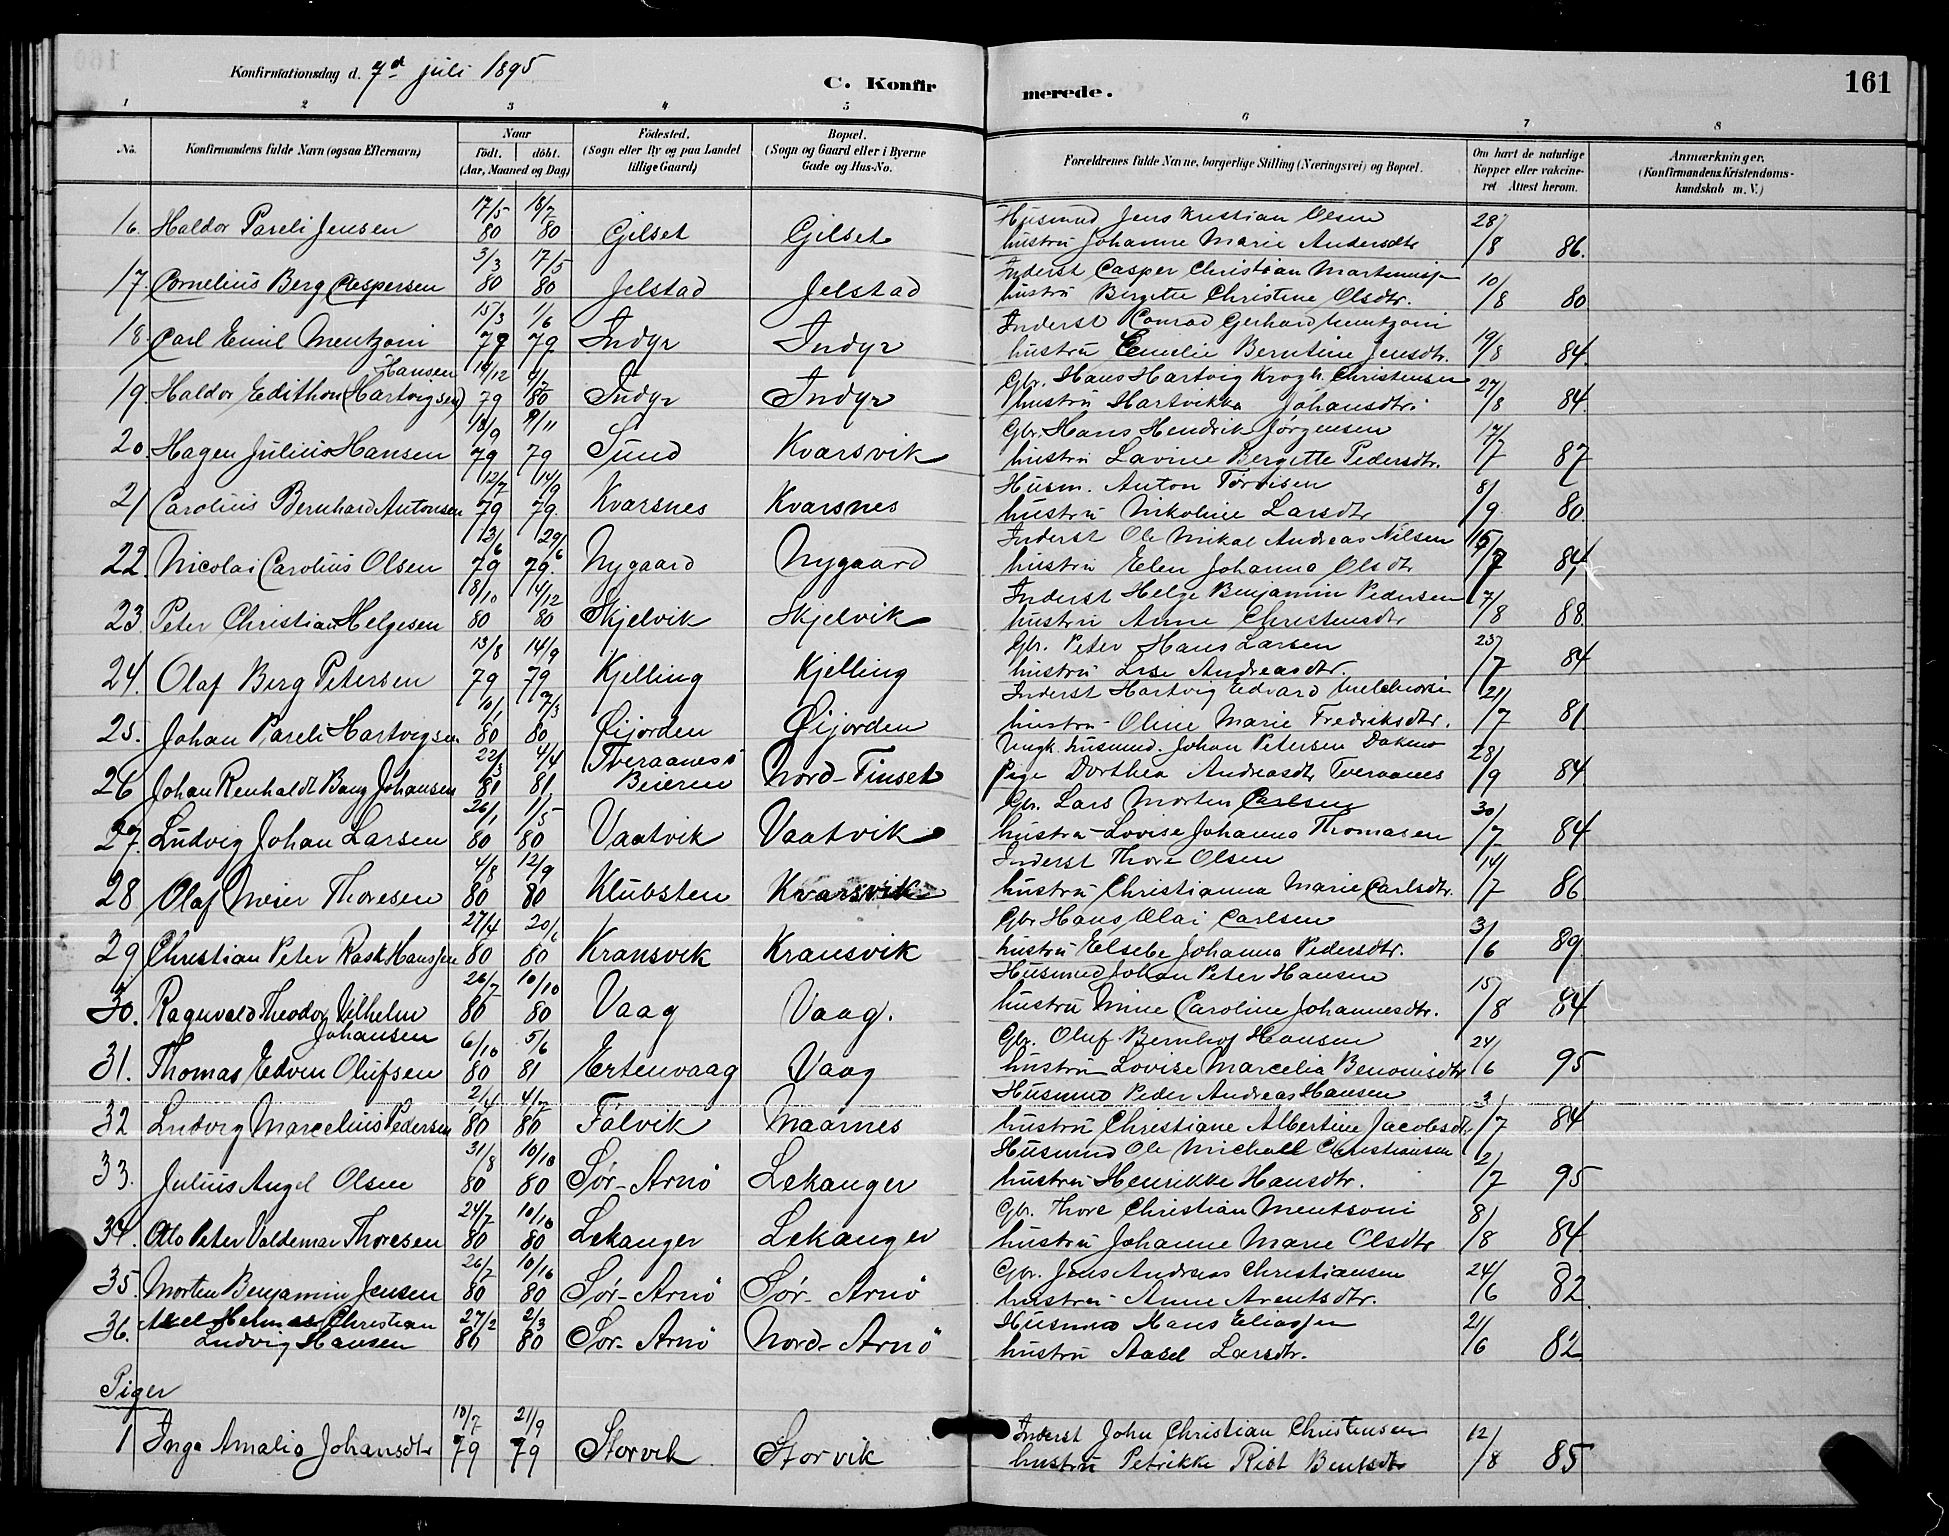 Konfirmationsdag d. 7d juli 1895
C. Konfirmerede.
161
1 2 3 4 5 6 7 8
No.
Konfirmandens fulde Navn (ogsaa Efternavn)
Naar
født. døbt.
(Aar, Maaned og Dag)
Fødested.
(Sogn eller By og paa Landet tillige Gaard)
Bopæl.
(Sogn og Gaard eller i Byerne Gade og Hus-No.
Forældrenes fulde Navne, borgerlige Stilling (Næringsvei) og Bopæl.
Om havt de naturlige Kopper eller vakcineret. Attest herom.
Anmærkninger.
(Konfirmandens Kristendomskundskab m. V.)
16. Haldor Pareli Jensen 17/5 80 18/7 80 Gilset Gilset Husmnd Jens Kristian Olsen
hustru Johanne Marie Andersdtr 28/8 86.
17. Cornelius Berg Caspersen 3/3 80 17/5 80 Jelstad Jelstad Inderst Casper Christian
hustru Birgitte Christine Olsdtr. 10/8 80
18. Carl Emil Mentzoni 15/3 79 1/6 79 Indyr Indyr Inderst Konrad Gerhard Mentzoni
hustru Emelie Berntine Jensdtr. 19/8 84.
19. Haldor Edithon (Hartvigsen) Hansen 79 80 Indyr Indyr Gbr. Hans Hartvig Krogh Christensen
hustru Hartvikka Johansdtr 27/8 84.
20. Hagen Julius Hansen 18/9 79 9/11 79 Sund Kvarsvik Gbr. Hans Hendrik Jørgensen
hustru Lavine Bergette Pedersdtr. 17/7 87
21 Carolius Bernhard Antonsen 12/7 79 14/9 79. Kvarsnes Kvarsnes Husm. Anton
hustru Nikoline Larsdtr 8/9 80.
22. Nicolai Carolius Olsen 13/6 79 29/6 79. Nygaard Nygaard Inderst Ole Mikal Andreas Nilsen
hustru Elen Johanna Olsdtr 84
23. Peter Christian Helgesen 8/10 80 14/12 80 Skjelvik Skjelvik Inderst Helge Benjamin Pedersen
hustru Anne Christensdtr 7/8 88.
24. Olaf Berg Petersen 13/8 79 14/9 79 Kjelling Kjelling Gbr. Peter Hans Larsen
hustru Lise Andreasdtr. 23/7 84
25. Johan Pareli Hartvigsen 10/1 80 7/3 80 Øijorden Øijorden Inderst Hartvig Edvard
hustru Oline Marie Fredriksdtr. 21/7 81.
26 Johan Renhaldt Bang Johansen 22/3 81 4/4 81 Tveraanes i Beieren Nord-Finset Ungk. husmnd. Johan Petersen
Pige Dorthea Andreasdtr Tveraanes 28/9 84.
27. Ludvig Johan Larsen 26/1 80 1/5 80 Vaatvik Vaatvik Gbr. Lars Morten Carlsen
hustru Lovise Johanna Thomasen 30/7 84
28 Olaf Meier Thoresen 4/8 80 12/9 80 Klubsten Kvarsvik Inderst Thore Olsen
hustru Christianna Marie Carlsdtr. 14/7 86
29 Christian Peter Rask Hanssen 27/4 80 20/6 80 Kransvik Kransvik Gbr Hans Olai Carlsen
hustru Elsebe Johanna Pedersdtr. 3/6 89.
30. Ragnvald Theodor Vilhelm Johansen 26/7 80 10/10 80 Vaag Vaag. Husmnd Johan Peter Hansen
hustru Mine Caroline Johannesdtr. 15/8 84
31. Thomas Edvin Olufsen 6/10 80 5/6 81 Ertenvaag Vaag Gbr. Oluf Bernhof Hansen
hustru Lovise Marcelia Benonisdtr 24/6 95
32 Ludvig Marcelius Pedersen 2/4 80 4/7 80 Falvik Maarnes Husmnd Peder Andreas Hansen
hustru Christiane Albertine Jacobsdtr 3/7 84
33. Julius Angel Olsen 31/8 80 10/10 80 Sør-Arnø Lekanger Husmnd Ole Michael Christiansen
hustru Henrikke Hansdtr. 2/7 95
34. Otto Peter Valdemar Thoresen 24/7 80 10/10 80 Lekanger Lekanger Gbr. Thore Christian Mentsoni
hustru Johanne Marie Olsdtr 8/8 84
35. Morten Benjamin Jensen 26/7 80 10/10 80 Sør-Arnø Sør-Arnø Gbr. Jens Andreas Christiansen
hustru Anne Arentsdtr. 24/6 82
36. Axel Helmer Christian Ludvig Hansen 27/2 80 2/3 80 Sør-Arnø Nord-Arnø Husmnd Hans Eliassen
hustru Aasel Larsdtr. 21/6 82
Piger
1 Inga Amalia Johansdtr 10/7 79 21/9 79 Storvik Storvik Inderst John Christian Christensen
hustru Petrikke Rist Bentsdtr 12/8 85